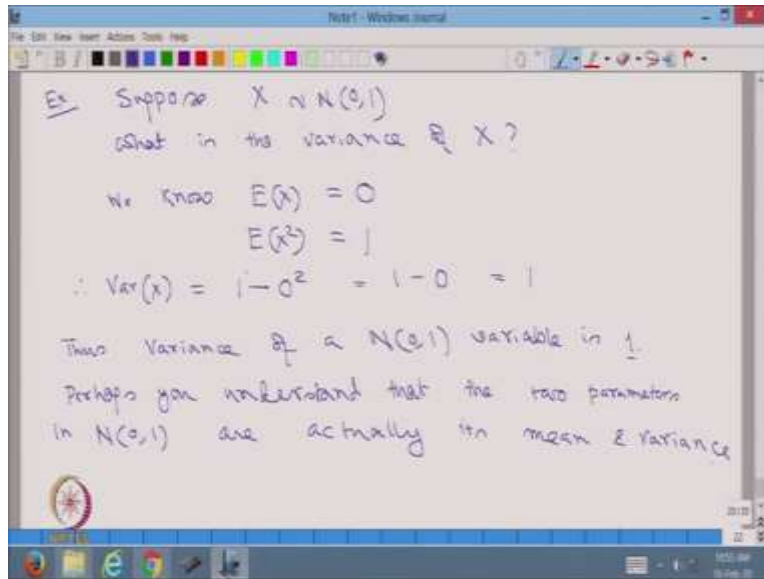 Note1 - Windows Journal
File Edit View Insert Actions Tools Help
Ex Suppose X ~ N(0,1)
What is the variance of X?
We know E(X) = 0
E(X²) = 1
∴ Var(x) = 1-0² = 1-0 = 1
Thus variance of a N(0,1) variable is 1.
Perhaps you understand that the two parameters
in N(0,1) are actually its mean & variance
NPTEL
22